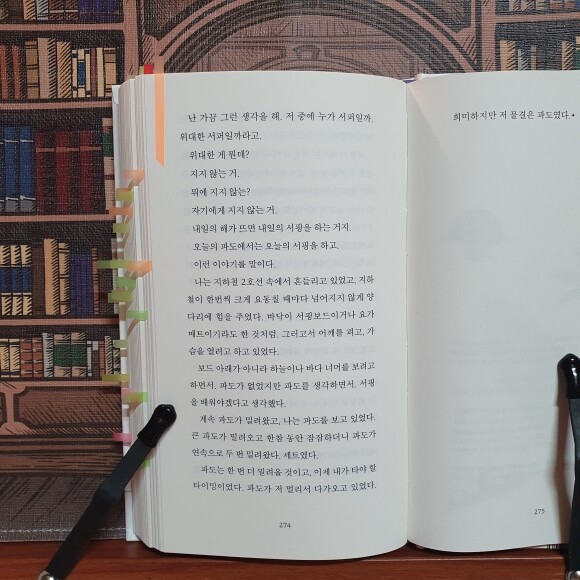 난 가끔 그런 생각을 해. 저 중에 누가 서퍼일까.
위대한 서퍼일까라고.
위대한 게 뭔데?
지지 않는 거.
뭐에 지지 않는?
자기에게 지지 않는 거.
내일의 해가 뜨면 내일의 서핑을 하는 거지.
오늘의 파도에서는 오늘의 서핑을 하고.
이런 이야기를 말이다.
나는 지하철 2호선 속에서 흔들리고 있었고, 지하
철이 한번씩 크게 요동칠 때마다 넘어지지 않게 양
다리에 힘을 주었다. 바닥이 서핑보드이거나 요가
매트이기라도 한 것처럼. 그러고서 어깨를 펴고, 가
슴을 열려고 하고 있었다.
보드 아래가 아니라 하늘이나 바다 너머를 보려고
하면서, 파도가 없었지만 파도를 생각하면서, 서핑
을 배워야겠다고 생각했다.
계속 파도가 밀려왔고, 나는 파도를 보고 있었다.
큰 파도가 밀려오고 한참 동안 잠잠하더니 파도가
연속으로 두 번 밀려왔다. 세트였다.
파도는 한 번 더 밀려올 것이고, 이제 내가 타야 할
타이밍이었다. 파도가 저 멀리서 다가오고 있었다.
274
희미하지만 저 물결은 파도였다.
275